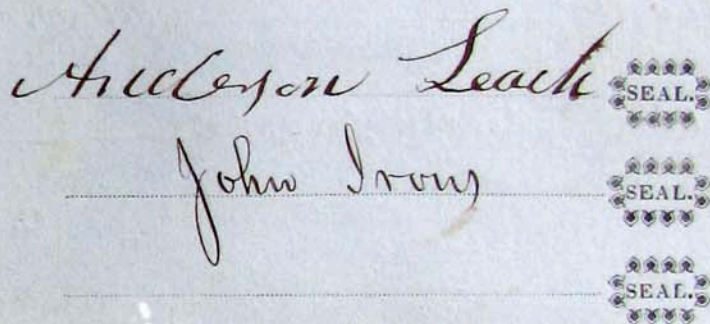 Anderson Leach SEAL.
John Irons SEAL.
SEAL.